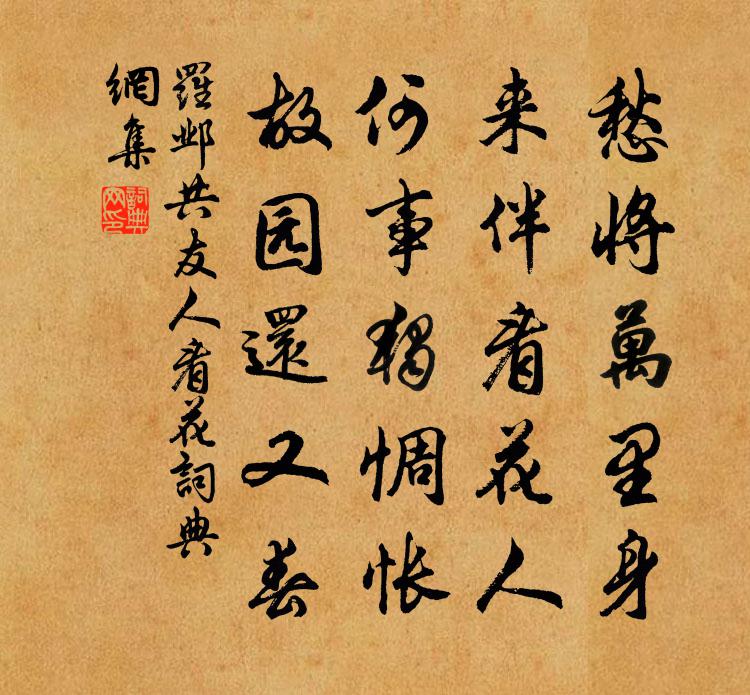 愁将萬里身
来伴看花人
何事獨惆怅
故园還又春
羅邺共友人看花詞典
網集
詞典
网印